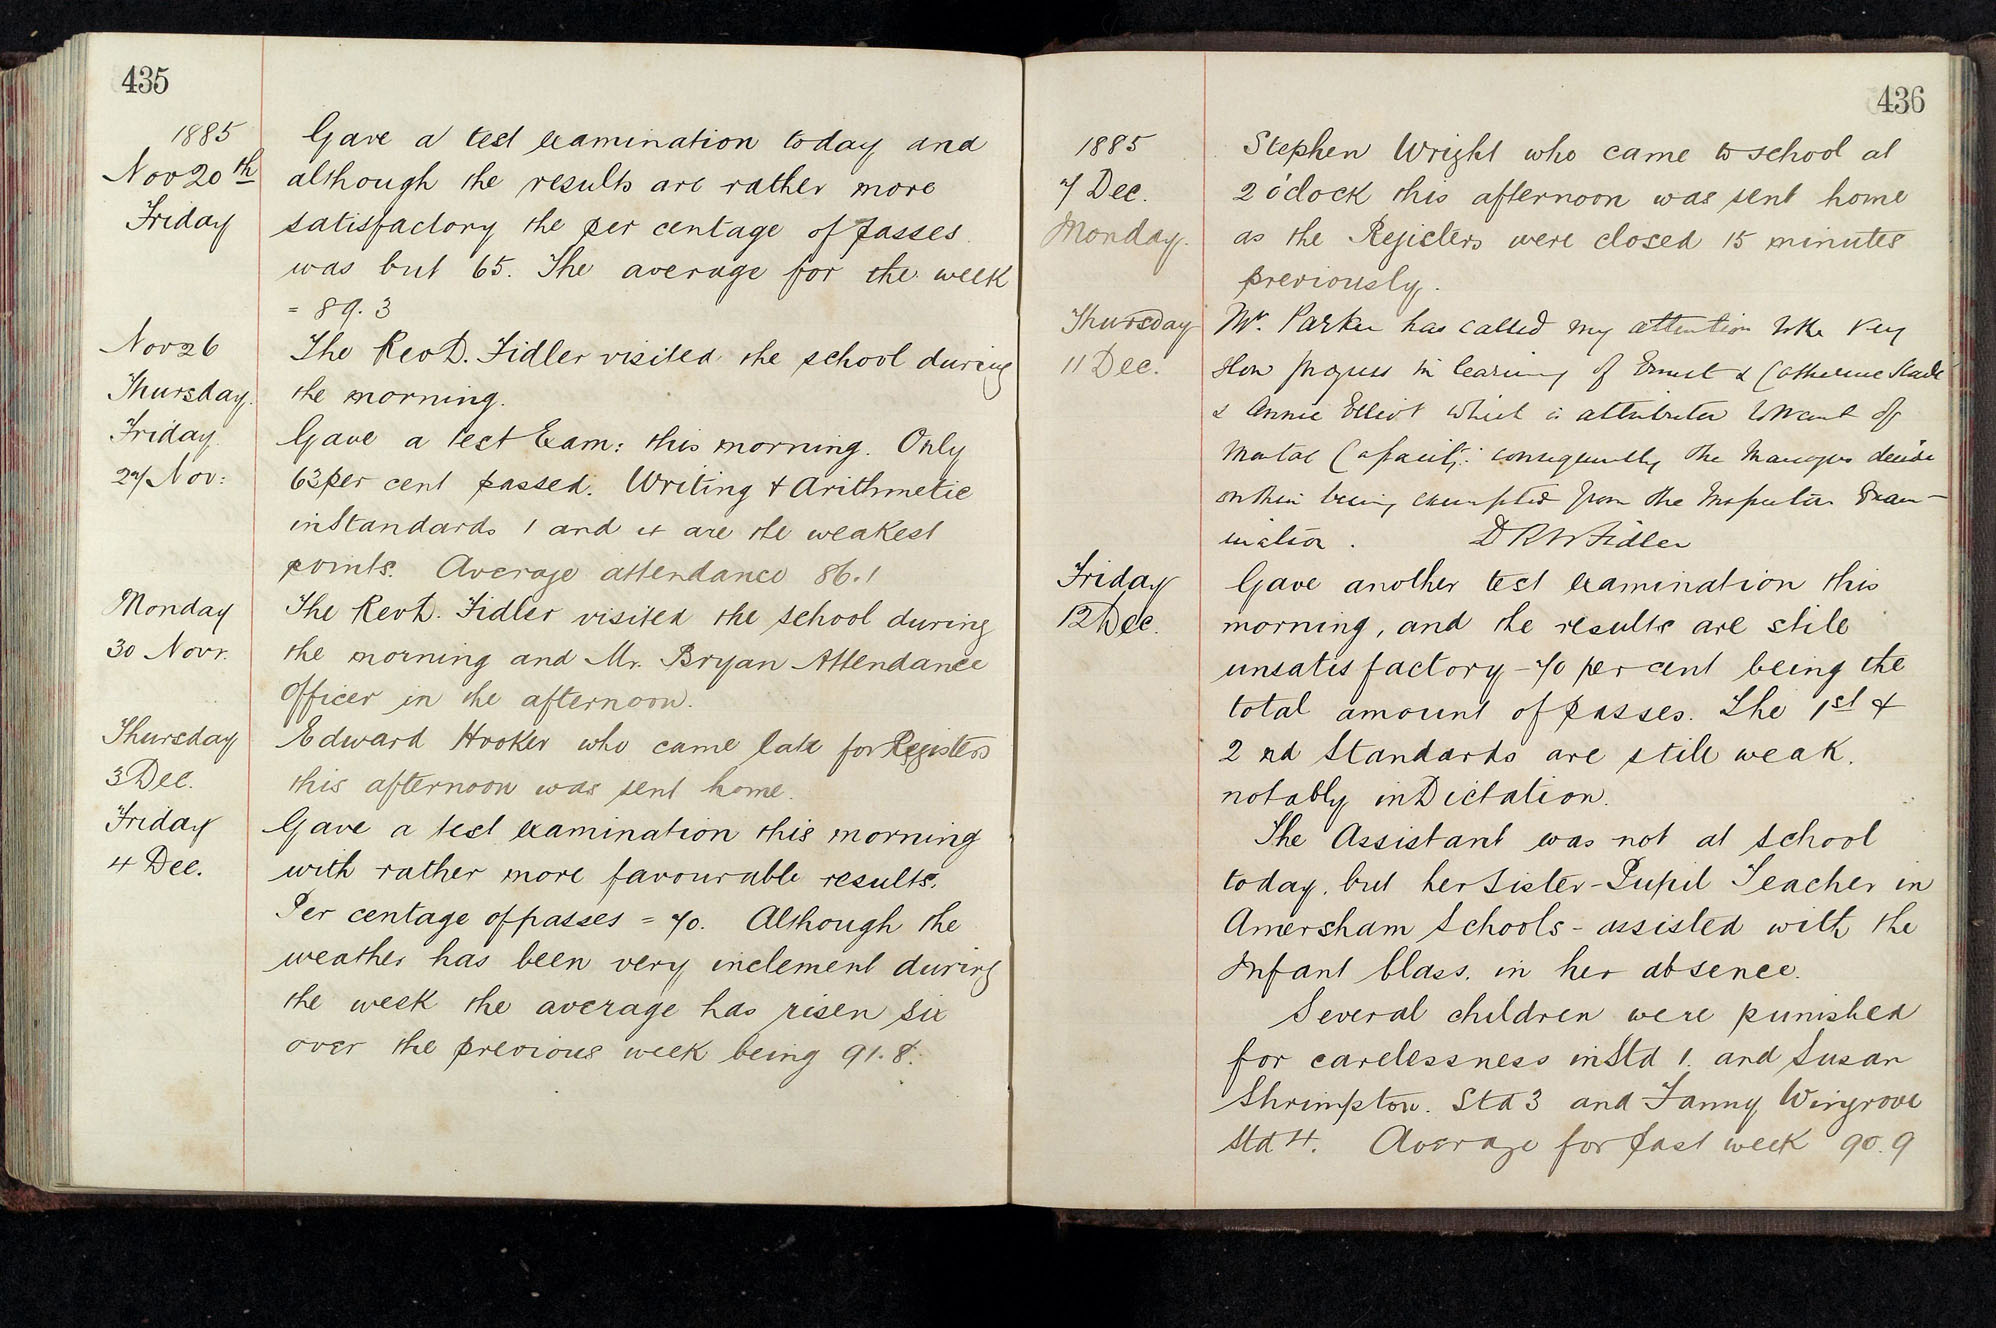 435
1885
Nov 20th
Friday
Gave a test examination today and
although the results are rather more
satisfactory the per centage of passes
was but 65. The average for the week
= 89.3
Nov 26
Thursday.
The Revd. Fidler visited the school during
the morning.
Friday
27 Nov:
Gave a test Exam: this morning. Only
63 per cent passed. Writing & Arithmetic
in Standards 1 and 4 are the weakest
points. Average attendance 86.1
Monday
30 Novr.
The Revd. Fidler visited the school during
the morning and Mr. Bryan Attendance
Officer in the afternoon.
Thursday
3 Dec.
Edward Hooker who came late for Registers
this afternoon was sent home.
Friday
4 Dec.
Gave a test examination this morning
with rather more favourable results.
Per centage of passes = 70. Although the
weather has been very inclement during
the week the average has risen six
over the previous week being 91.8.
436
1885
7 Dec.
Monday.
Stephen Wright who came to school at
2 o'clock this afternoon was sent home
as the Registers were closed 15 minutes
previously.
Thursday
11 Dec.
Mr. Parker has called my attention to the very
slow progress in learning of Ernest & Catherine Slade
& Annie Elliot which is attributed to want of
Mental Capacity: consequently the Managers decide
on their being exempted from the Inspection Exam-
ination. D R W Fidler
Friday
12 Dec.
Gave another test examination this
morning, and the results are still
unsatisfactory - 70 per cent being the
total amount of passes. The 1st &
2nd Standards are still weak.
notably in Dictation.
The Assistant was not at school
today, but her Sister - Pupil Teacher in
Amersham Schools - assisted with the
Infant Class. in her absence.
Several children were punished
for carelessness in Std 1. and Susan
Shrimpton. Std 3 and Fanny Wingrove
Std 4. Average for past week 90.9